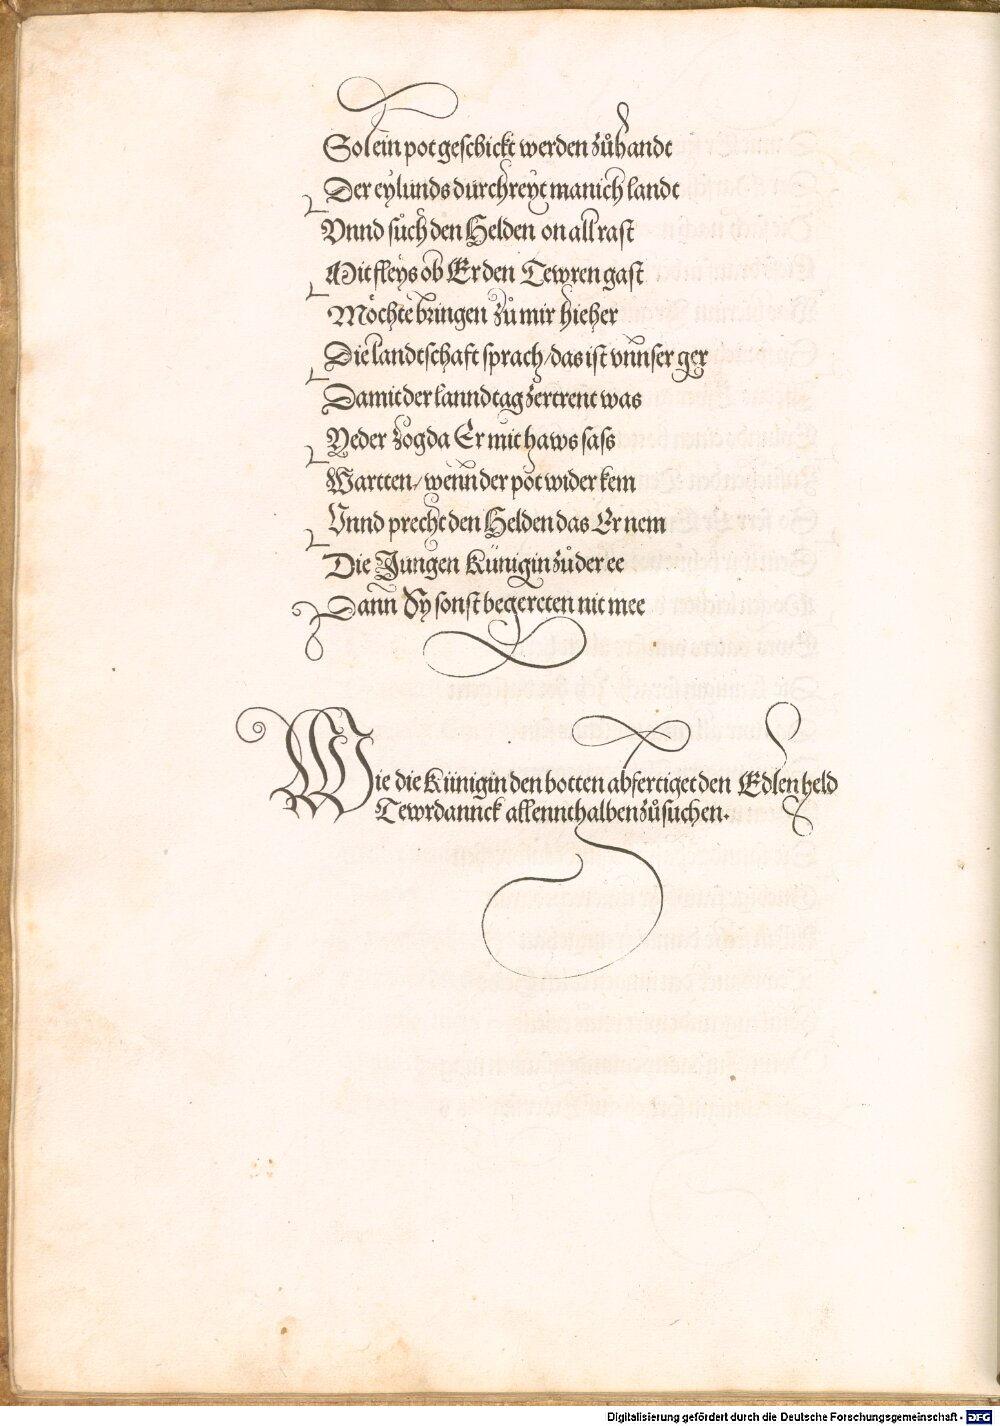 Sol ein pot geschickt werden zůhandt
Der eylunds durchreyt manich landt
Vnnd sůch den Helden on all rast
Mit fleys ob Er den Tewren gast
Möchte bringen zů mir hieher
Die landtschaft sprach/ das ist vnnser ger
Damit der lanndtag zertrent was
Yeder zog da Er mit haws sass
Wartten/ wenn der pot wider kem
Vnnd precht den Helden das Er nem
Die Jungen Künigin zůder ee
Dann Sy sonst begereten nit mee
Wie die Künigin den botten abfertiget den Edlen held
Tewrdannck allennthalben zůsuchen.
Digitalisierung gefördert durch die Deutsche Forschungsgemeinschaft - DFG